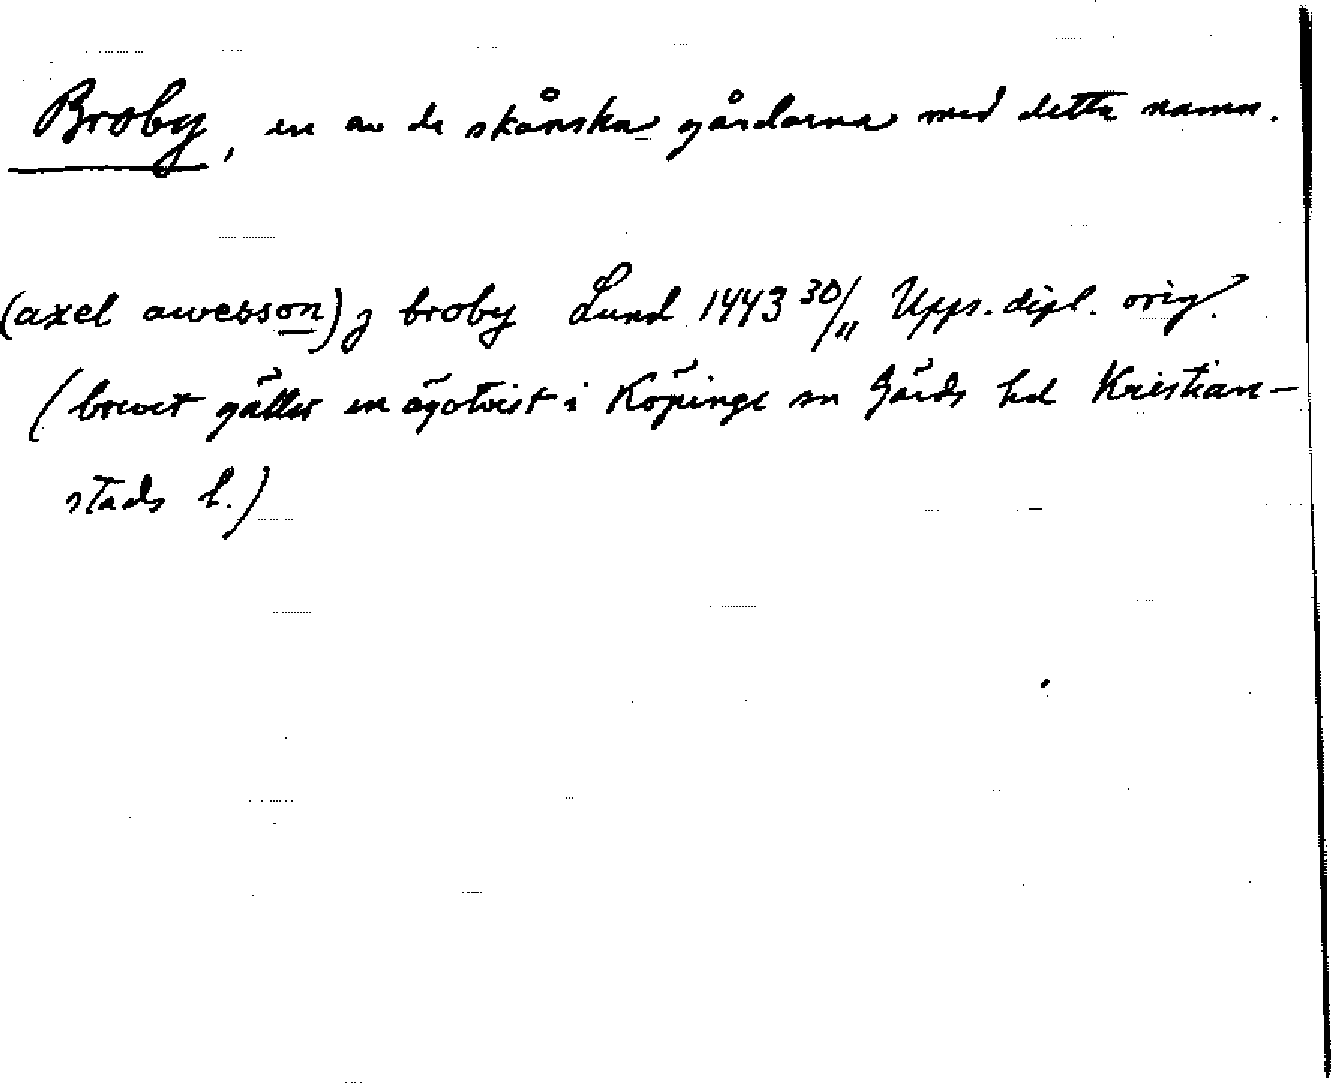 Broby, en av de skånska gårdarna med detta namn.
(axel awesson) j broby Lund 1443 30/11 Upps. dipl. orig.
(brevet gäller en ägotvist i Köpinge sn Gärds hd Kristian-
stads l.)